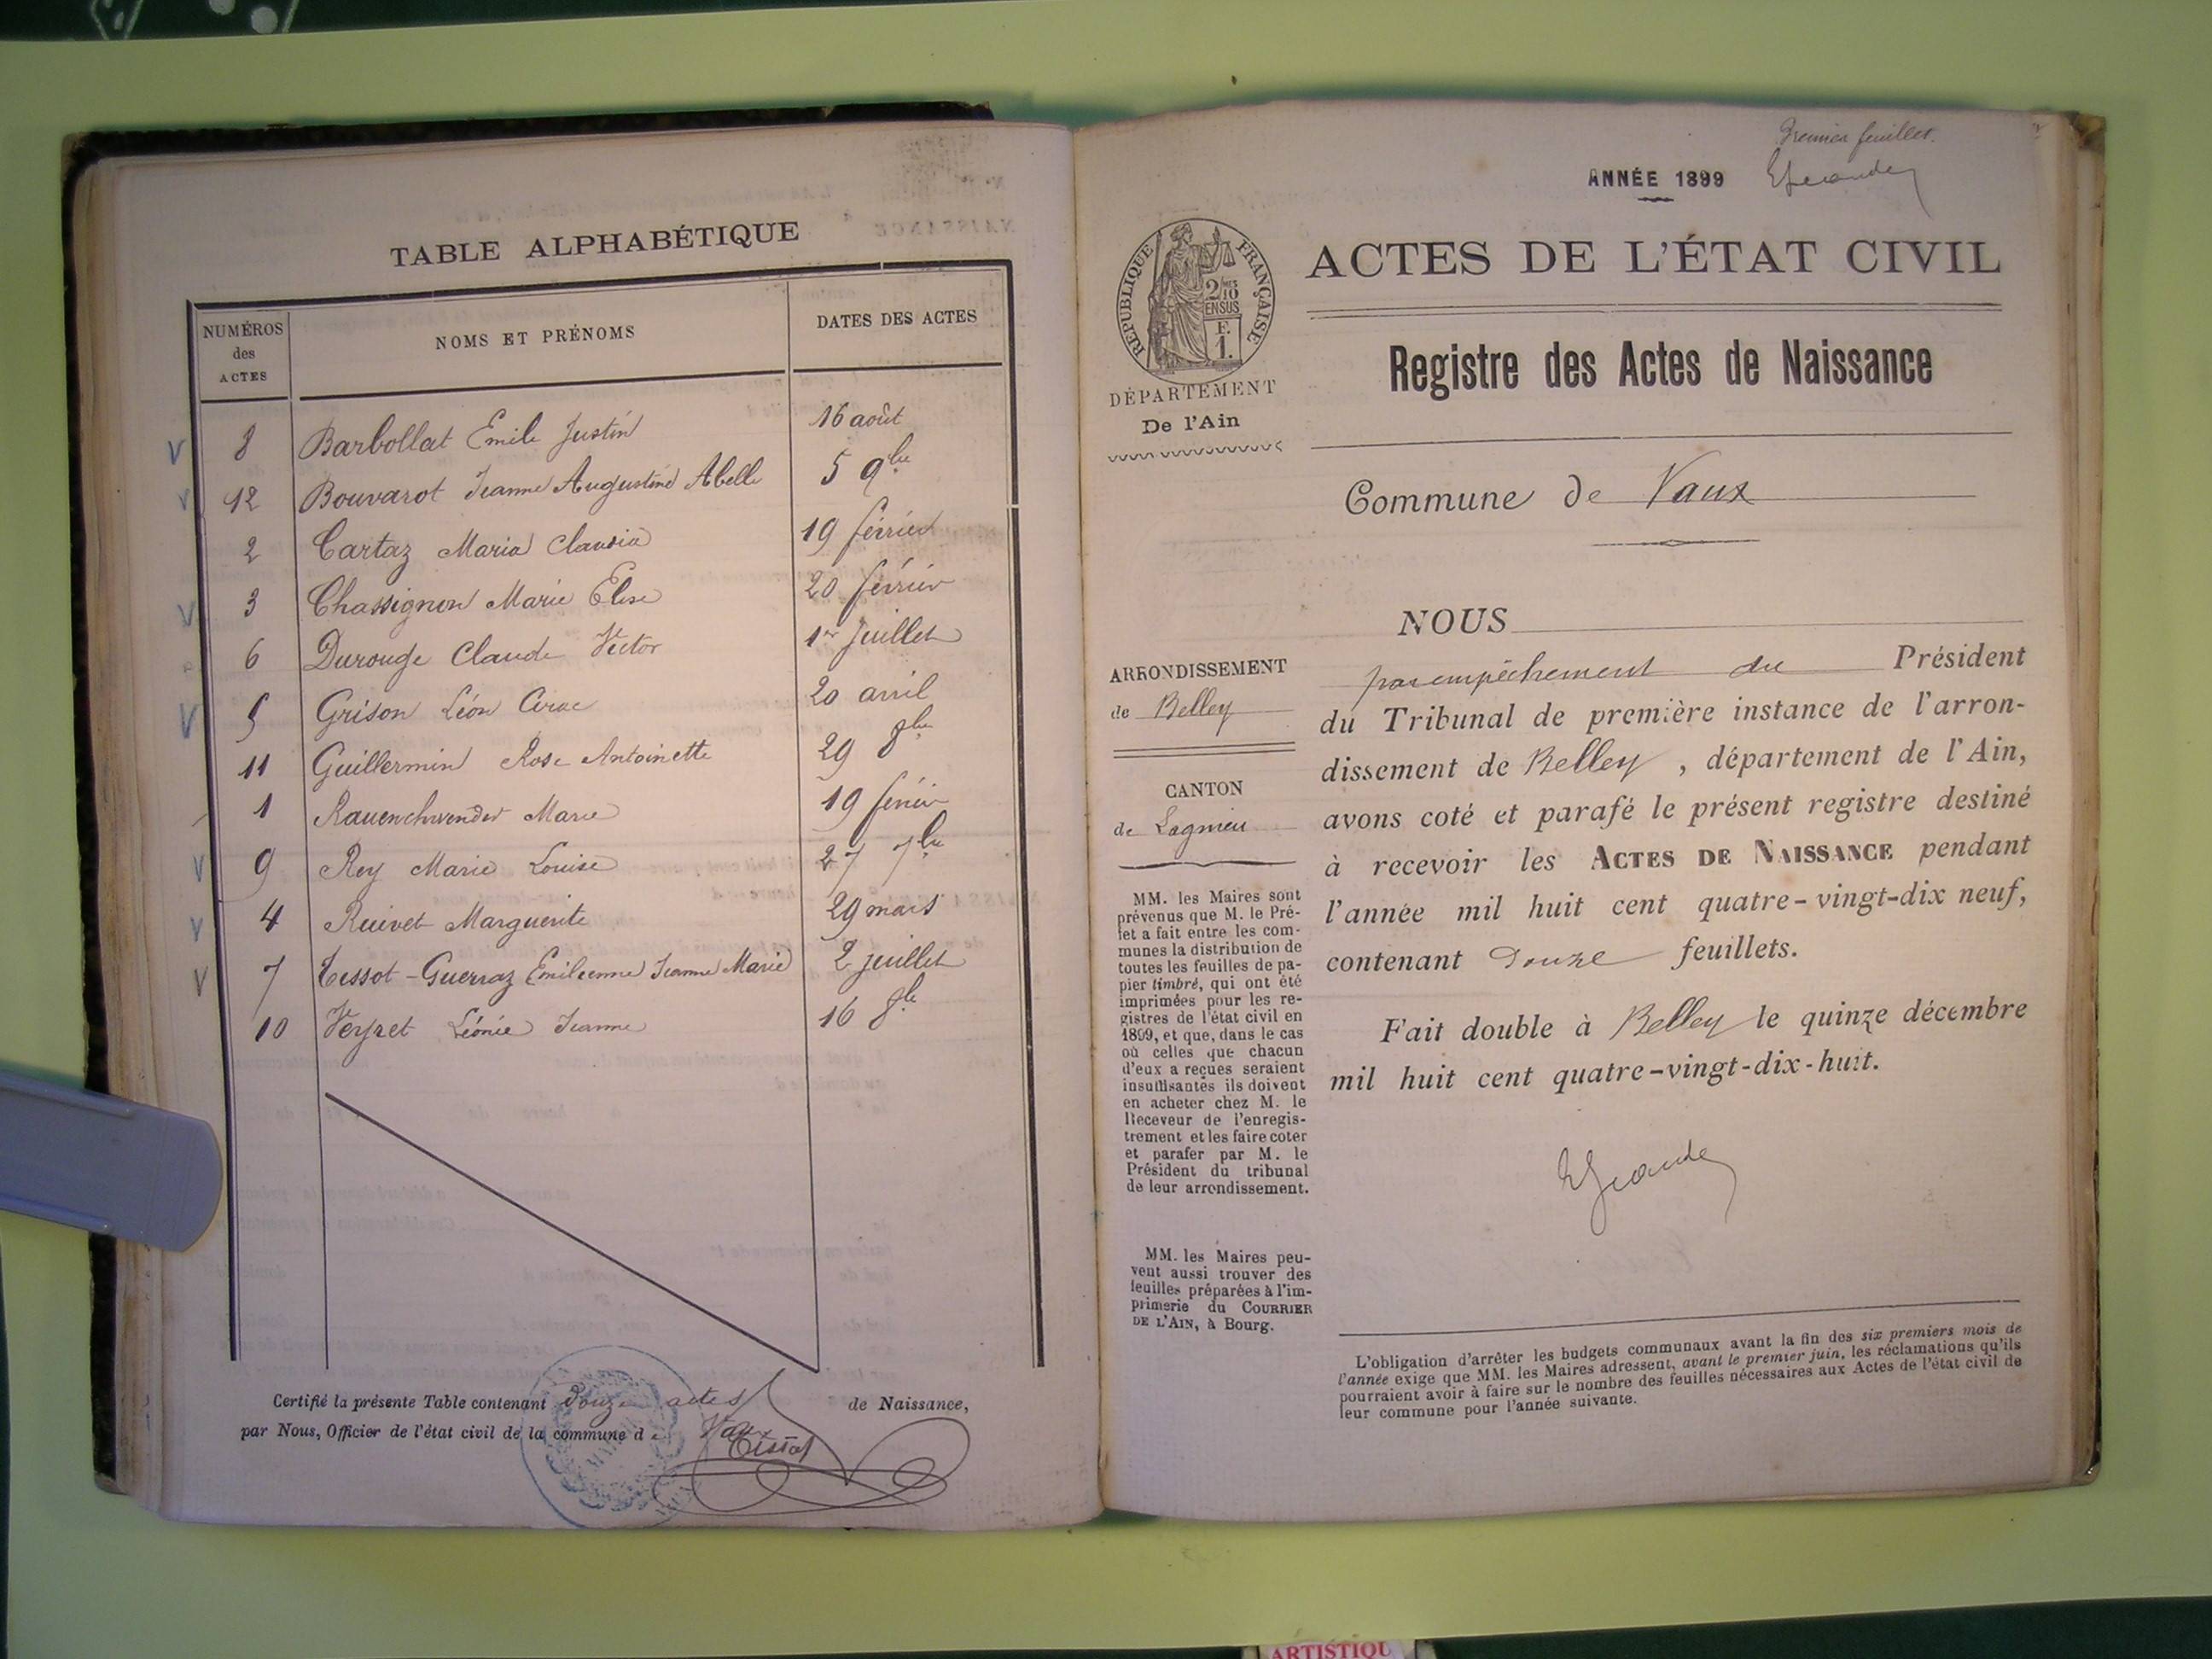 TABLE ALPHABÉTIQUE
NUMÉROS des ACTES NOMS ET PRÉNOMS DATES DES ACTES
8 Barbollat Emile Justin 16 août
12 Bouvarot Jeanne Augustine Abelle 5 9bre
2 Cartaz Maria Claudia 19 février
3 Chassignon Marie Elise 20 février
6 Durouge Claude Victor 1er Juillet
5 Grison Léon 20 avril
11 Guillermin Rose Antoinette 29 8bre
1 Marie 19 février
9 Rey Marie Louise 27 7bre
4 Ruivet Marguerite 29 mars
7 Tissot-Guerraz Emilienne Jeanne Marie 2 juillet
10 Veyret Léonie Jeanne 16 8bre
Certifié la présente Table contenant Douze actes de Naissance,
par Nous, Officier de l'état civil de la commune de Vaux
Tissot
Premier feuillet.
ANNÉE 1899
RÉPUBLIQUE FRANÇAISE
2/10 EN SUS
F. 1.
ACTES DE L'ÉTAT CIVIL
DÉPARTEMENT
De l'Ain
Registre des Actes de Naissance
Commune de Vaux
ARRONDISSEMENT
de Belley
CANTON
de Lagnieu
MM. les Maires sont
prévenus que M. le Pré-
fet a fait entre les com-
munes la distribution de
toutes les feuilles de pa-
pier timbré, qui ont été
imprimées pour les re-
gistres de l'état civil en
1899, et que, dans le cas
où celles que chacun
d'eux a reçues seraient
insuffisantes ils doivent
en acheter chez M. le
Receveur de l'enregis-
trement et les faire coter
et parafer par M. le
Président du tribunal
de leur arrondissement.
MM. les Maires peu-
vent aussi trouver des
feuilles préparées à l'im-
primerie du COURRIER
DE L'AIN, à Bourg.
NOUS
par empêchement du Président
du Tribunal de première instance de l'arron-
dissement de Belley, département de l'Ain,
avons coté et parafé le présent registre destiné
à recevoir les ACTES DE NAISSANCE pendant
l'année mil huit cent quatre-vingt-dix neuf,
contenant Douze feuillets.
Fait double à Belley le quinze décembre
mil huit cent quatre-vingt-dix-huit.
L'obligation d'arrêter les budgets communaux avant la fin des six premiers mois de
l'année exige que MM. les Maires adressent, avant le premier juin, les réclamations qu'ils
pourraient avoir à faire sur le nombre des feuilles nécessaires aux Actes de l'état civil de
leur commune pour l'année suivante.
ARTISTIQU